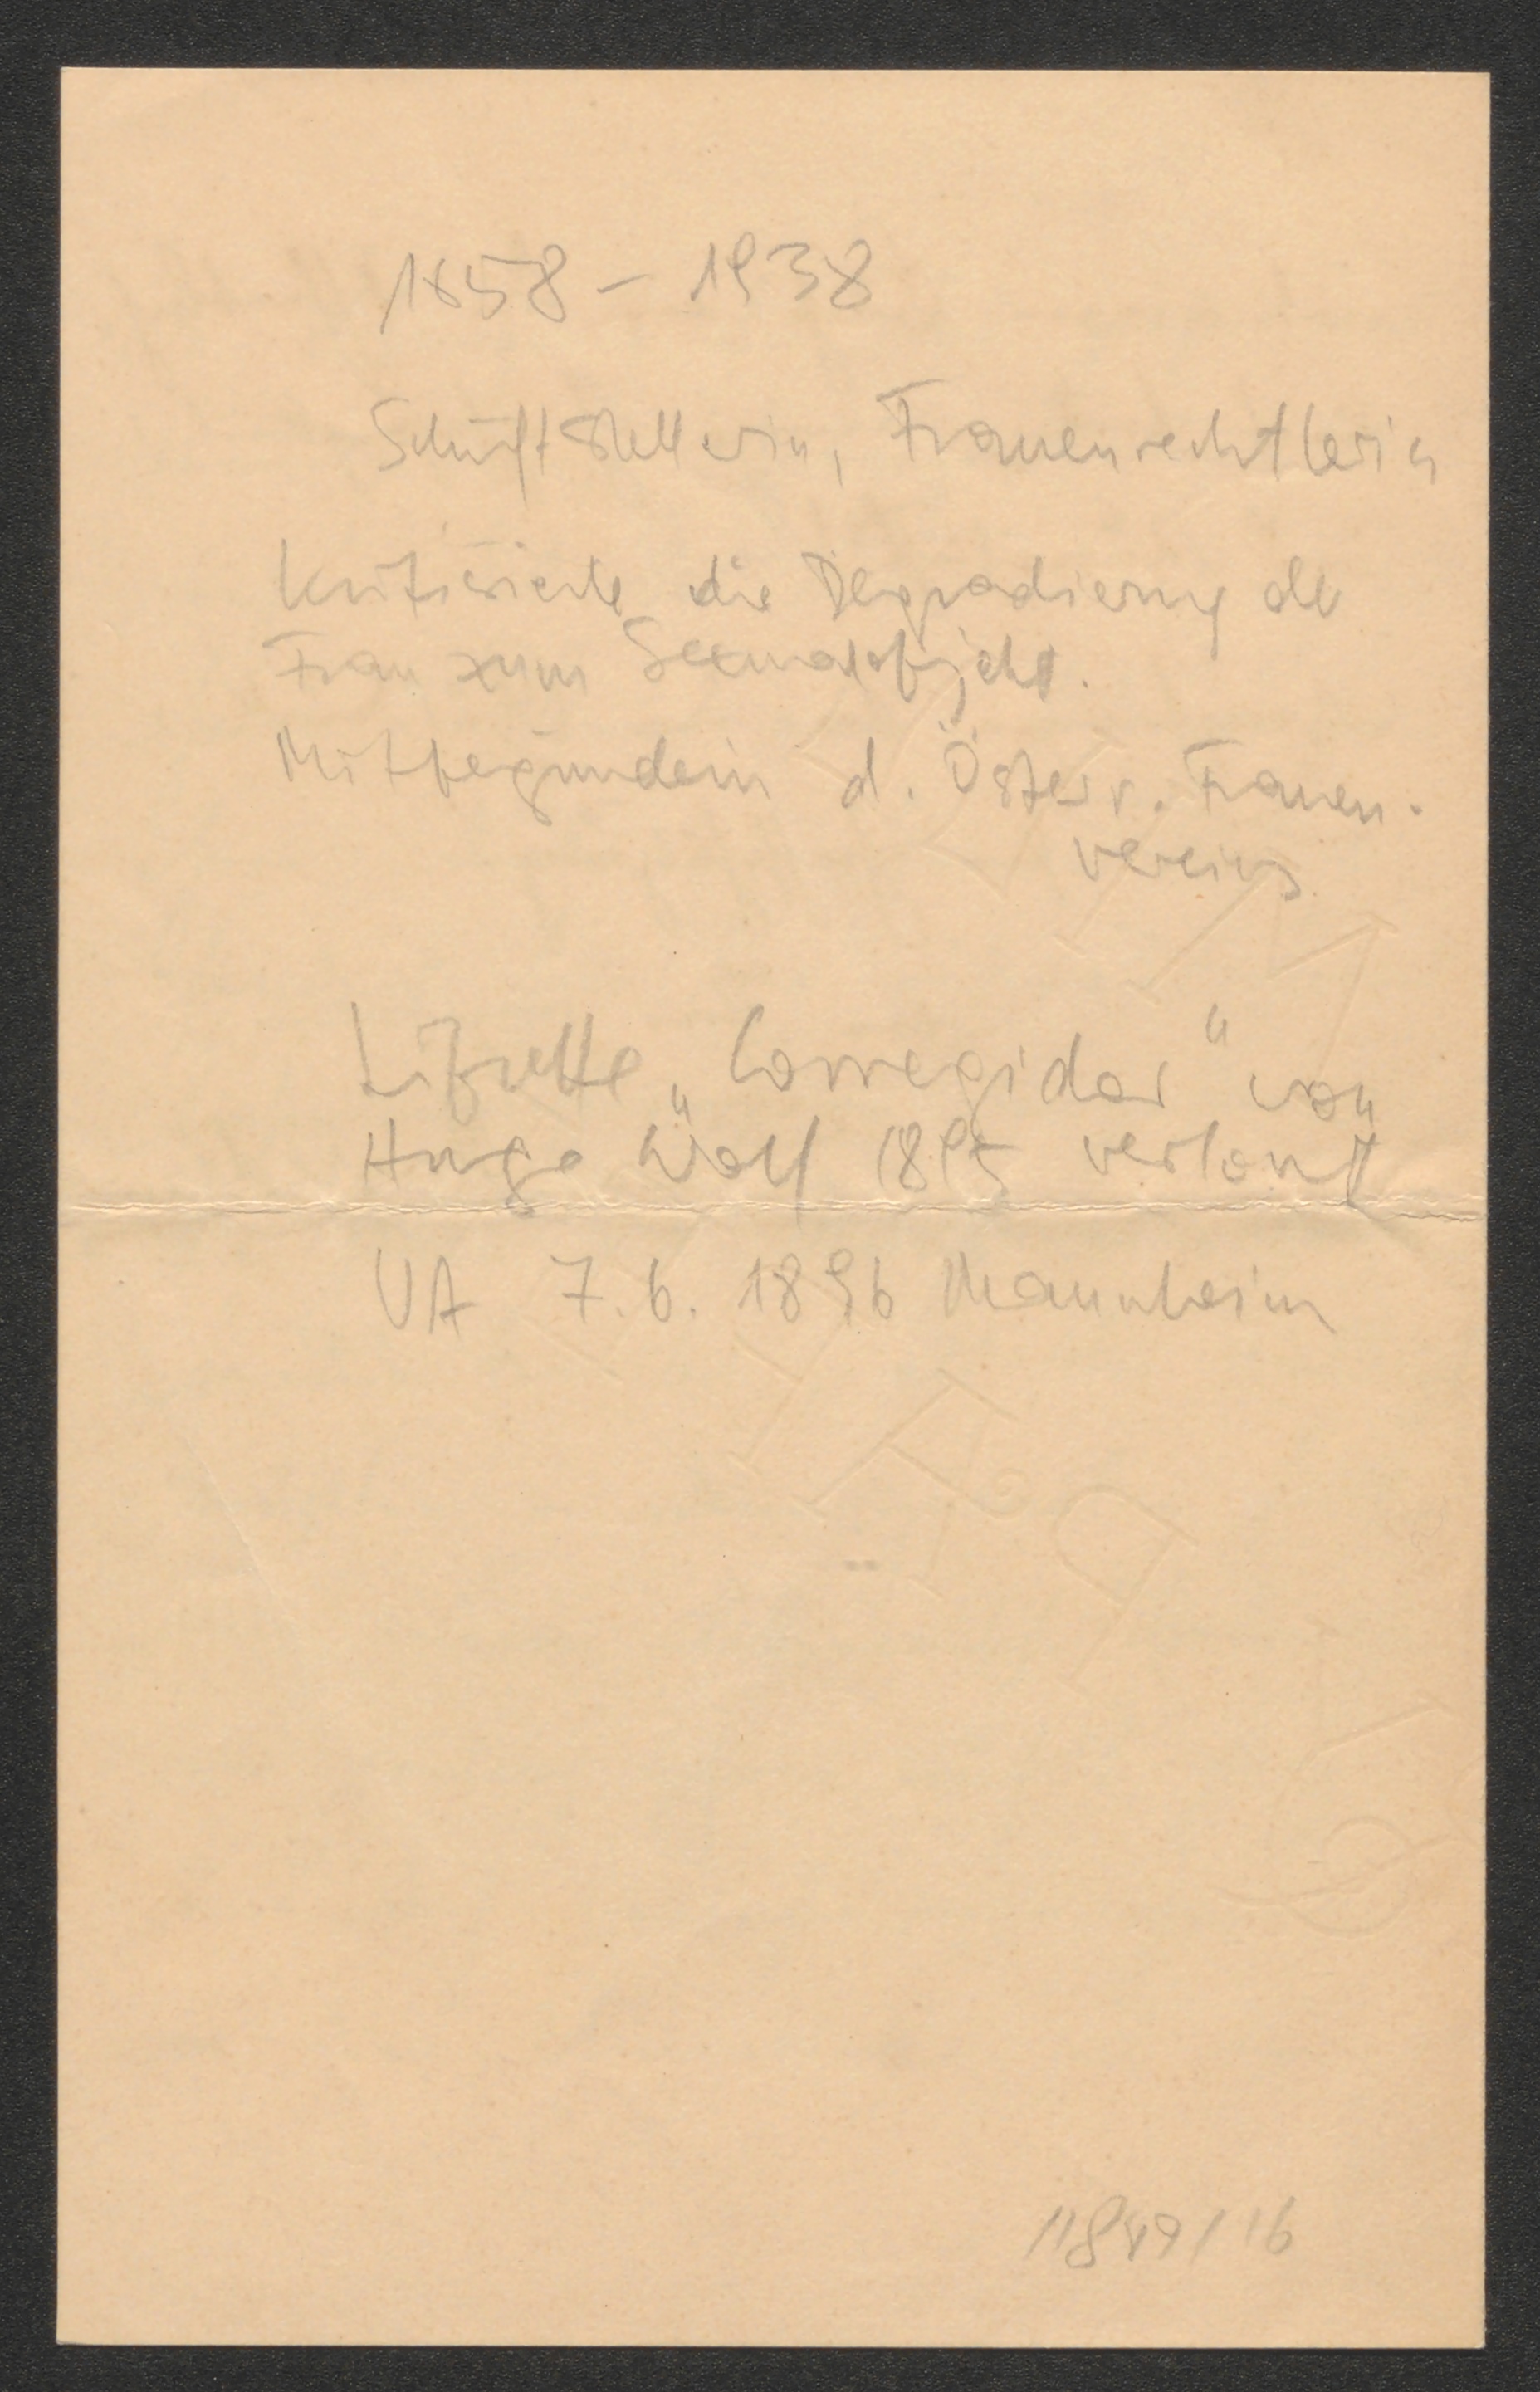 1858 – 1938
Schriftstellerin, Frauenrechtlerin
kritisierte die Degradierung der
Frau zum Sexualobjekt.
Mitbegründerin d. Österr. Frauen-
vereins
Librette „Corregidor" von
Hugo Wolf 1895 vertont
UA 7.6. 1896 Mannheim
11849/16